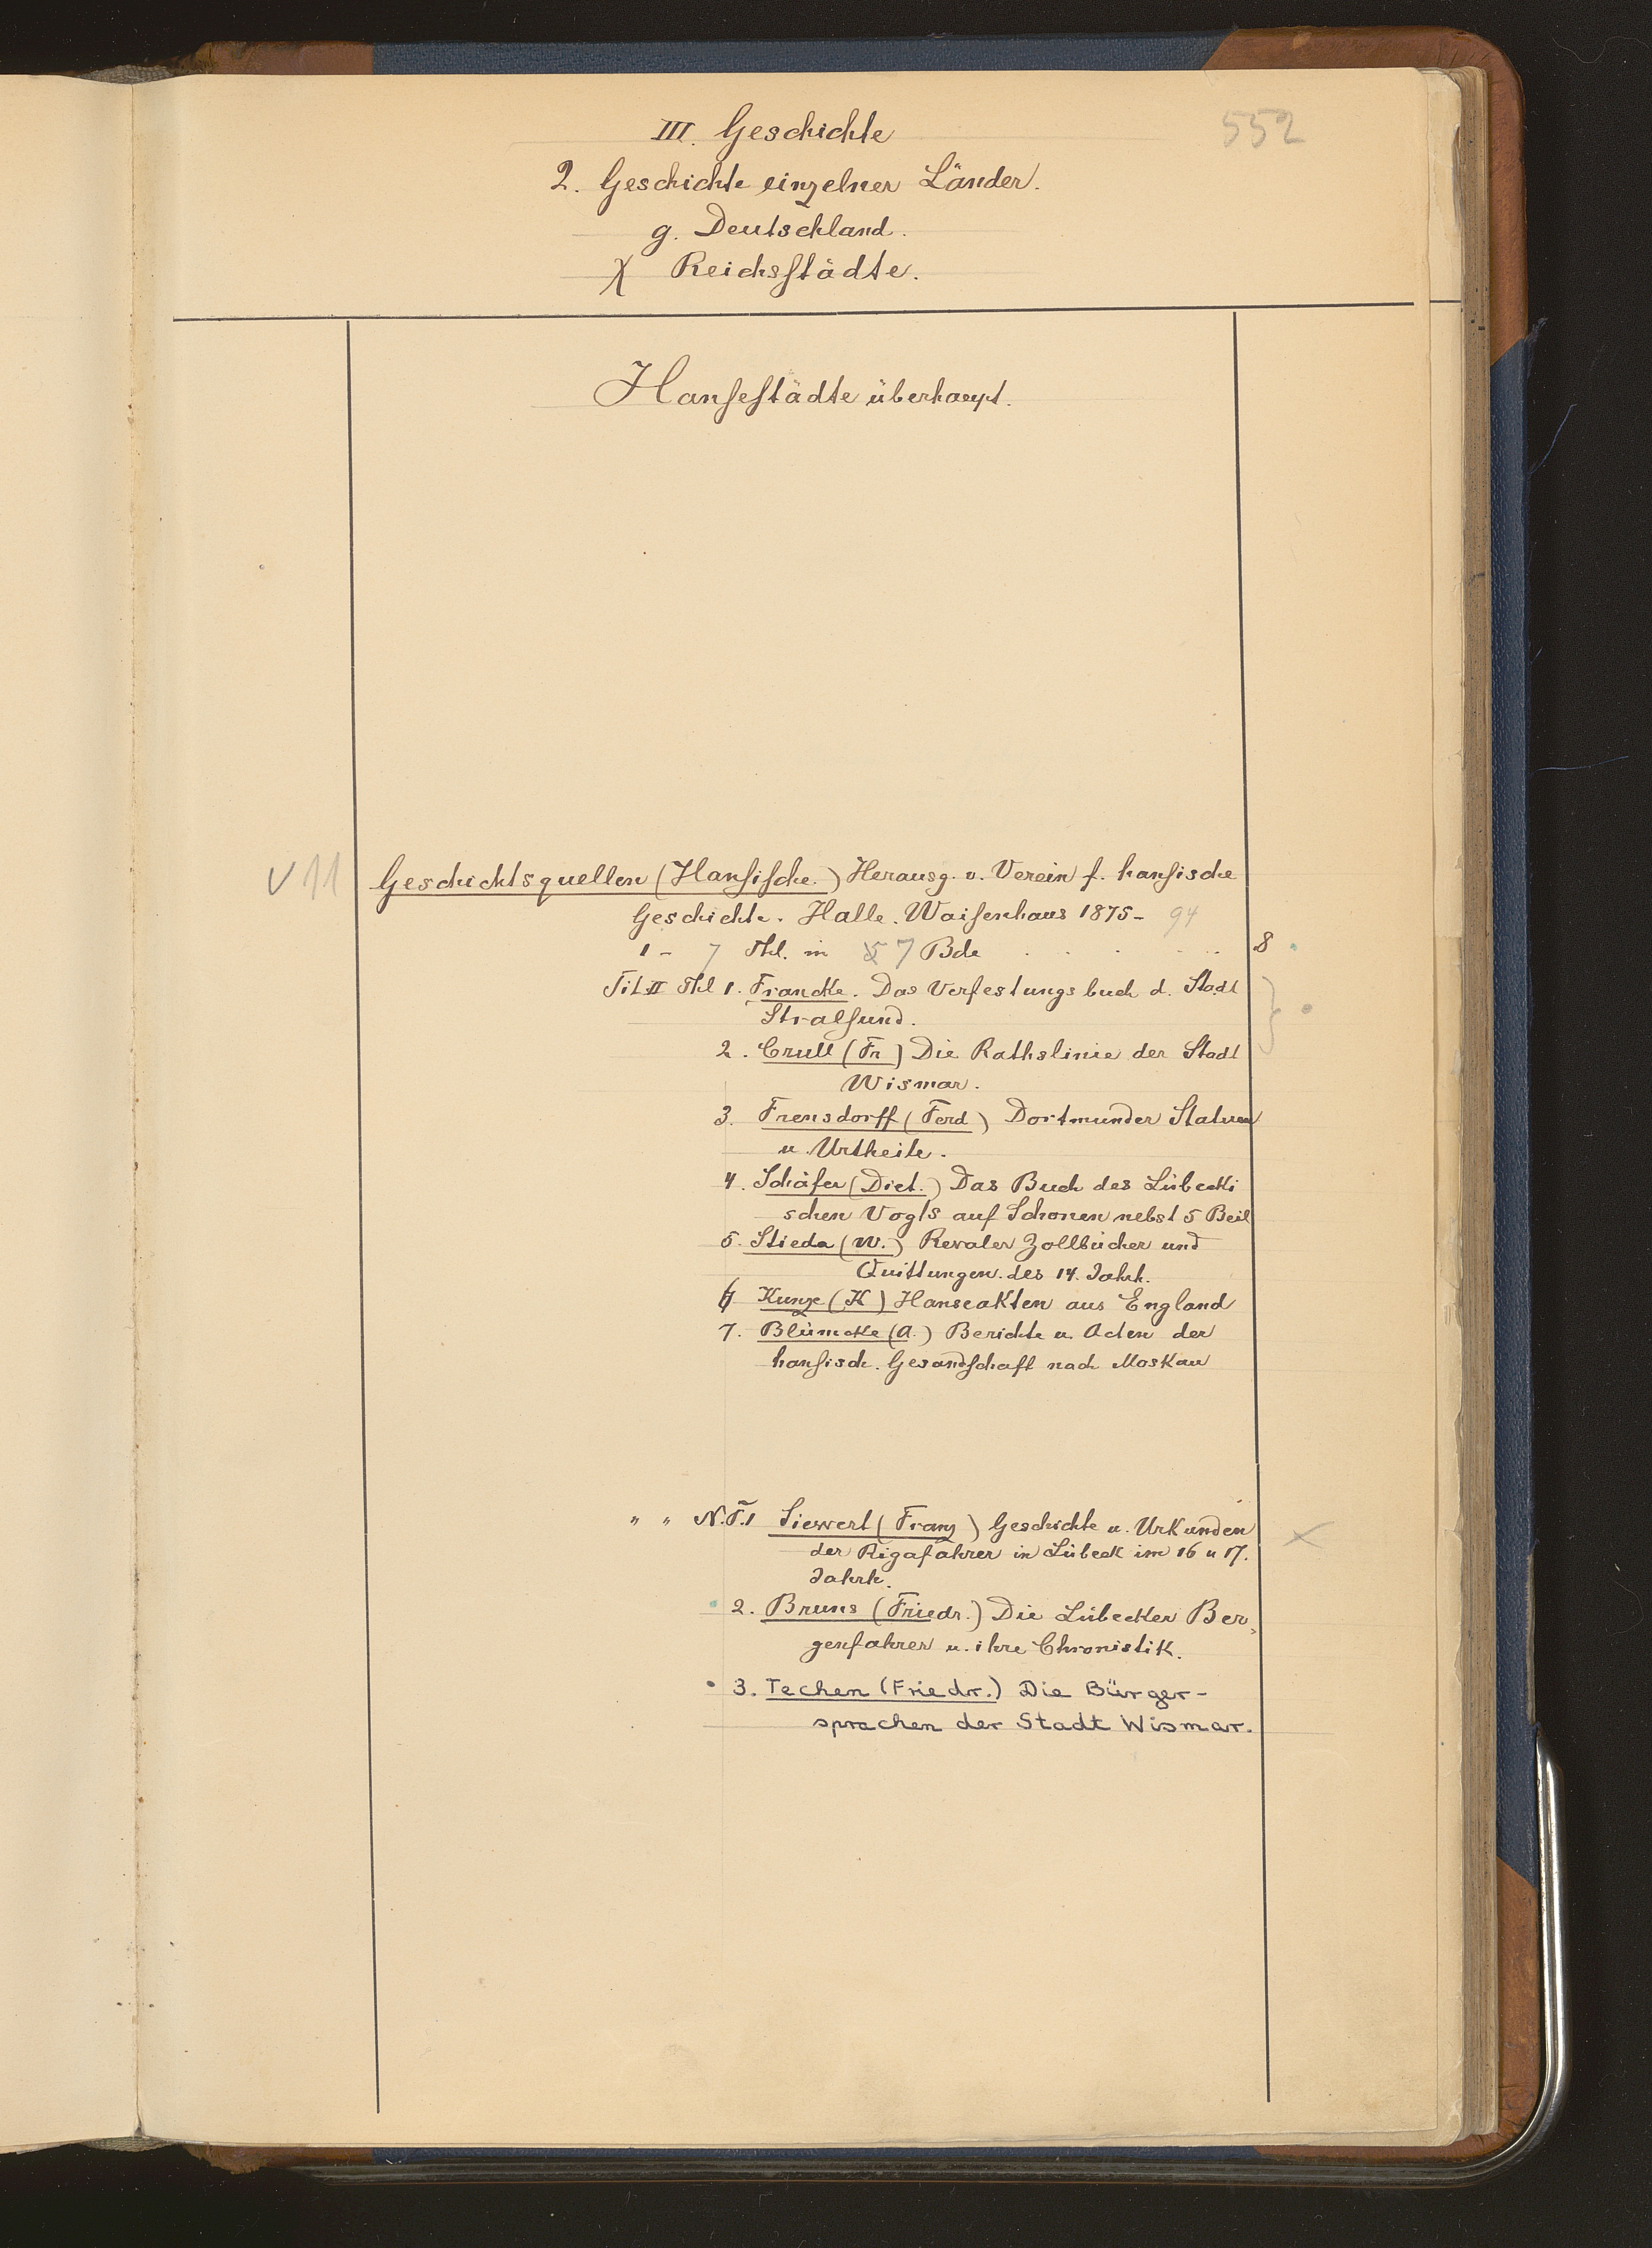 552
III. Geschichte
2. Geschichte einzelner Länder.
g. Deutschland.
χ Reichsstädte.
Hansestädte überhaupt.
V 11 Geschichtsquellen (Hansische.) Herausg. v. Verein f. hansische
Geschichte. Halle. Waisenhaus 1875- 94
1 - 7 Thl. in 5 7 Bde . . . . . . 8
Tit II Thl 1. Francke. Das Verfestungsbuch d. Stadt
Stralsund.
2. Crull (Fr) Die Rathslinie der Stadt
Wismar.
3. Frensdorff (Ferd) Dortmunder Statuen
u. Urtheile.
4. Schäfer (Diet.) Das Buch des Lübecki
schen Vogts auf Schonen nebst 5 Beil
5. Stieda (W.) Revaler Zollbücher und
Quittungen. des 14. Jahrh.
6 Kunze (K) Hanseakten aus England
7. Blümcke (A.) Berichte u. Acten der
hansisch. Gesandschaft nach Moskau
" " N.F.1 Siewert (Franz) Geschichte u. Urkunden
der Rigafahrer in Lübeck im 16 u 17.
Jahrh.
2. Bruns (Friedr.) Die Lübecker Ber=
genfahrer u. ihre Chronistik.
3. Techen (Friedr.) Die Bürger-
sprachen der Stadt Wismar.